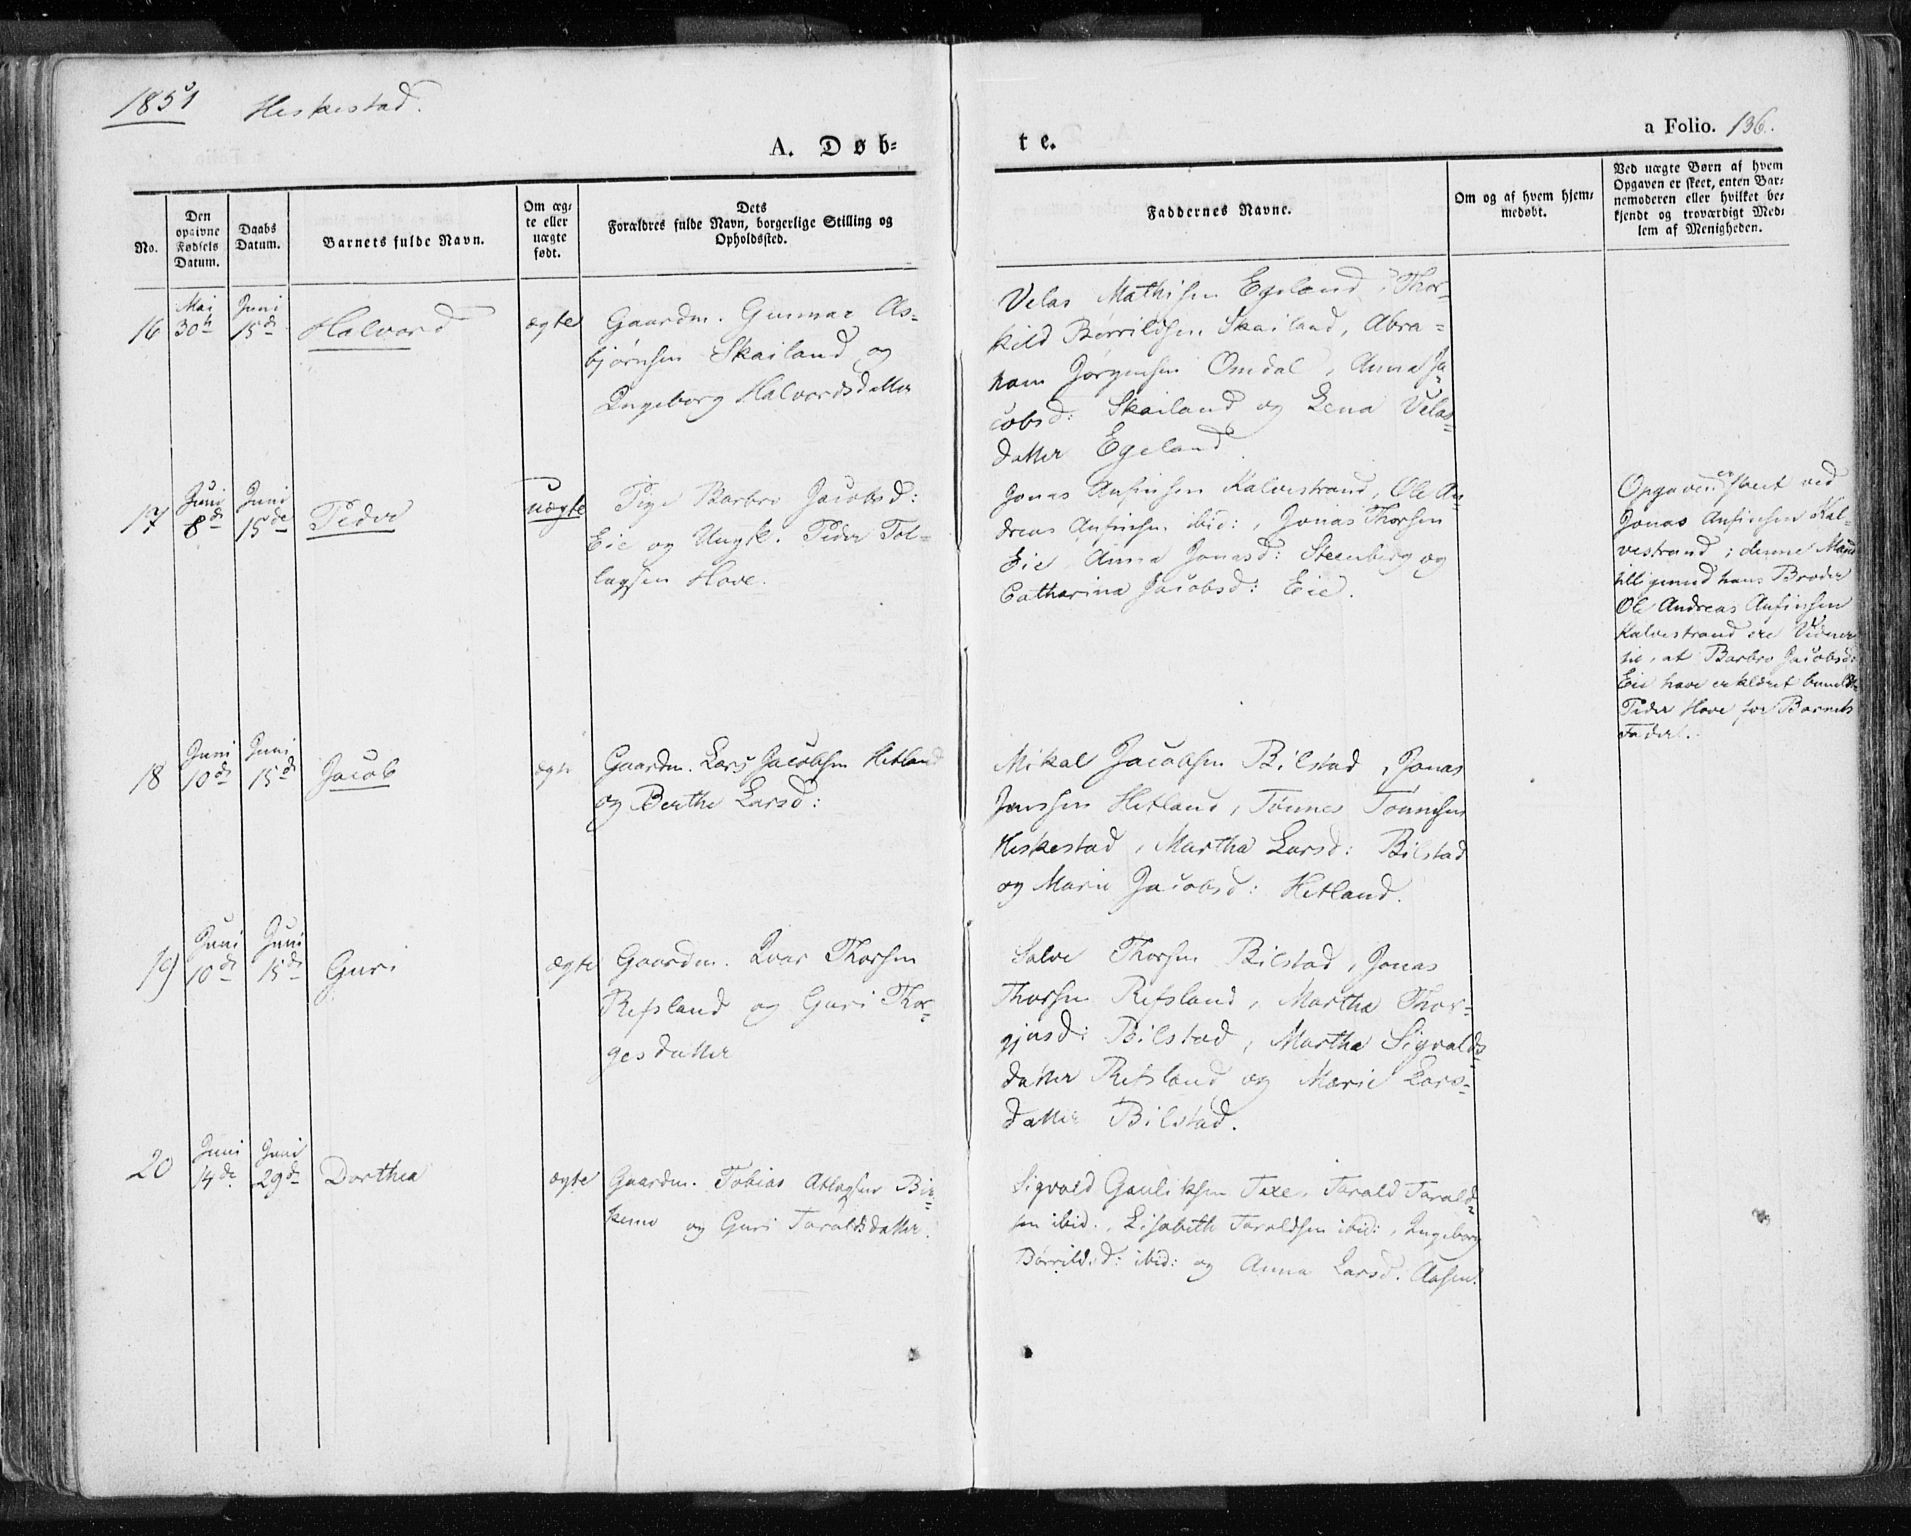 1851 Heskestad.
a Folio. 136.
A. Døb-
te.
No.
Den
opgivne
Fødsels
Datum.
Daabs
Datum.
Barnets fulde Navn.
Om æg-
te eller
uægte
født.
Dets
Forældres fulde Navn, borgerlige Stilling og
Opholdssted.
Faddernes Navne.
Om og af hvem hjem-
medøbt.
Ved uægte Børn af hvem
Opgaven er skeet, enten Bar-
nemoderen eller hvilket be-
kjendt og troværdigt Med-
lem af Menigheden.
16
Mai
30te
Juni
15de
Halvord
ægte
Gaardm. Gunnar As-
bjørnsen Skailand og
Ingeborg Halvordsdatter
Velas Mathisen Egeland, Thor-
kild Børrildsen Skailand, Abra-
ham Jørgensen Omdal, Anna Ja-
cobsd: Skailand og Lena Velas-
datter Egeland.
17
Juni
8de
Juni
15de
Peder
uægte
Pige Barbro Jacobsd:
Eie og Ungk. Peder Tol-
lagsen Hove.
Jonas Anfinsen Kalvestrand, Ole An-
dreas Anfinsen ibid:, Jonas Thorsen
Eie, Anna Jonasd: Steenberg og
Catharina Jacobsd: Eie.
Opgaven er skeet ved
Jonas Anfinsen Kal-
vestrand; denne Mand
tilligemed hans Broder
Ole Andreas Anfinsen
Kalvestrand ere Vidner
til, at Barbro Jacobsd:
Eie have erklæret
Peder Hove for Barnets
Fader.
18
Juni
10de
Juni
15de
Jacob
ægte
Gaardm. Lars Jacobsen Hetland
og Berthe Larsd:
Mikal Jacobsen Bilstad, Jonas
Jonssen Hetland, Tønnes Tønnesen
Heskestad, Martha Larsd: Bilstad
og Marie Jacobsd: Hetland.
19
Juni
10de
Juni
15de
Guri
ægte
Gaardm. Ivar Thorsen
Refsland og Guri Thor-
gesdatter
Salve Thorsen Bilstad, Jonas
Thorsen Refsland, Martha Thor-
gjusd: Bilstad, Martha Sigvalds-
datter Refsland og Marie Lars-
datter Bilstad.
20
Juni
14de
Juni
29de
Dorthea
ægte
Gaardm. Tobias Atlagsen Bir-
kemo og Guri Taraldsdatter.
Sigvald Gauliksen Taxe, Tarald Tarald-
sen ibid., Lisabeth Taraldsen ibid:, Ingeborg
Børrildsd: ibid: og Anna Larsd. Aasen.